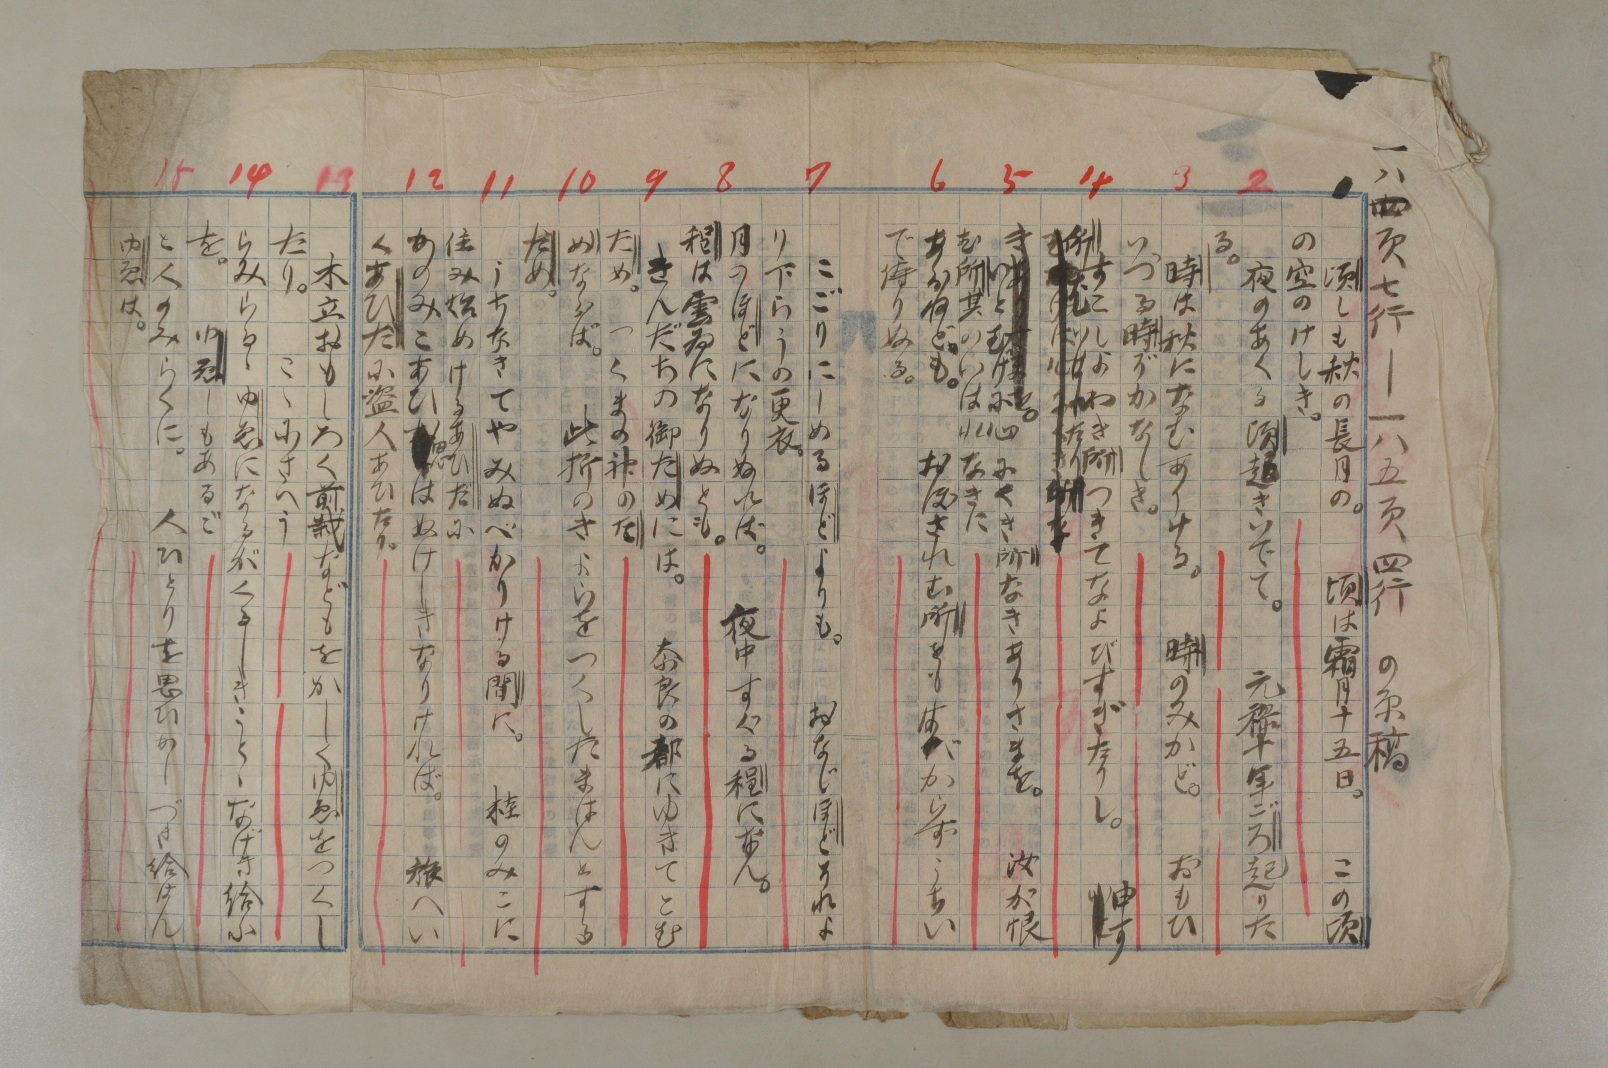 一八四頁七行―一八五頁四行 の原稿
1 頃しも秋の長月の。 頃は霜月十五日。 この頃
の空のけしき。
2 夜のあくる頃起きいでて。 元禄十年ごろ起りた
る。
3 時は秋になむありける。 時のみかど。 おもひ
いづる時ぞかなしき。
4 すこしよわき所つきてなよびすぎたりし。 申す
所
5 いとむげに心にくき所なきありさまを。 汝が恨
む所其のいはれなきに
6 あらねども。 おぼされむ所をもはばからずうちい
で侍りぬる。
7 こごりにしめるほどよりも。 おなじほどそれよ
り下らうの更衣。
8 月のほどになりぬれば。 夜中すぐる程になん。
程は雲ゐになりぬとも。
9 きんだちの御ためには。 奈良の都にゆきてこむ
ため。 つくまの神のた
10 めならば。 此折のきよらをつくしたまはんとする
ため。
11 うちなきてやみぬべかりける間に。 桂のみこに
住み始めけるあひだに
12 かのみこあひ思はぬけしきなりければ。 旅へい
くあひだに盗人あひたり。
13 木立おもしろく前栽などもをかしくゆゑをつくし
たり。 こゝにさへう
14 らみらるゝゆゑになるがくるしきこと、なげき給ふ
を。 ゆゑしもあるご
15 と人のみらくに。 人ひとりを思ひかしづき給はん
ゆゑは。